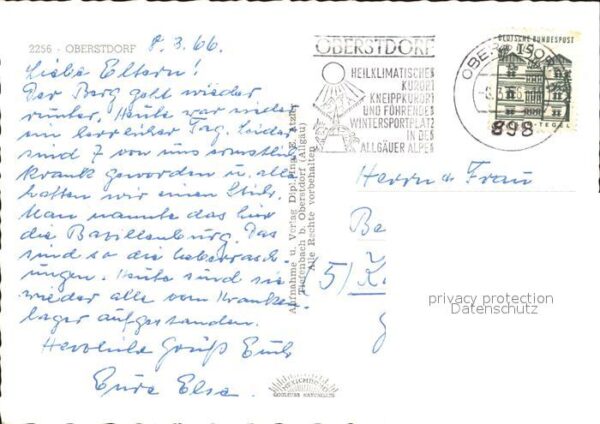 2256 - OBERSTDORF 8.3.66.
Liebe Eltern!
Der Berg geht wieder
runter. Heute war wieder
ein herrlicher Tag. Leider
sind 7 von uns ernstlich
krank geworden u. alle
hatten wir einen Stich.
Man nannte das hier
die Bazillenburg. Das
sind so die Ueberrasch-
ungen. Heute sind sie
wieder alle vom Kranken-
lager aufgestanden.
Herzliche Grüße Euch
Eure Elsa.
Aufnahme u. Verlag Dipl.Ing.
Tiefenbach b. Oberstdorf (Allgäu)
Alle Rechte vorbehalten
OBERSTDORF
HEILKLIMATISCHER
KURORT
KNEIPPKURORT
UND FÜHRENDER
WINTERSPORTPLATZ
IN DEN
ALLGÄUER ALPEN
DEUTSCHE BUNDESPOST
15
TEGEL
898
Herrn u. Frau
Be
(5)
privacy protection
Datenschutz